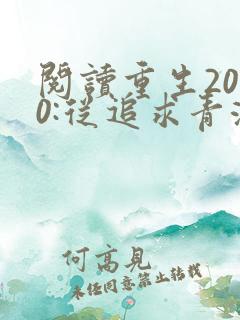 閱讀重生20
0:從追求青
何高見
未經同意禁止轉載